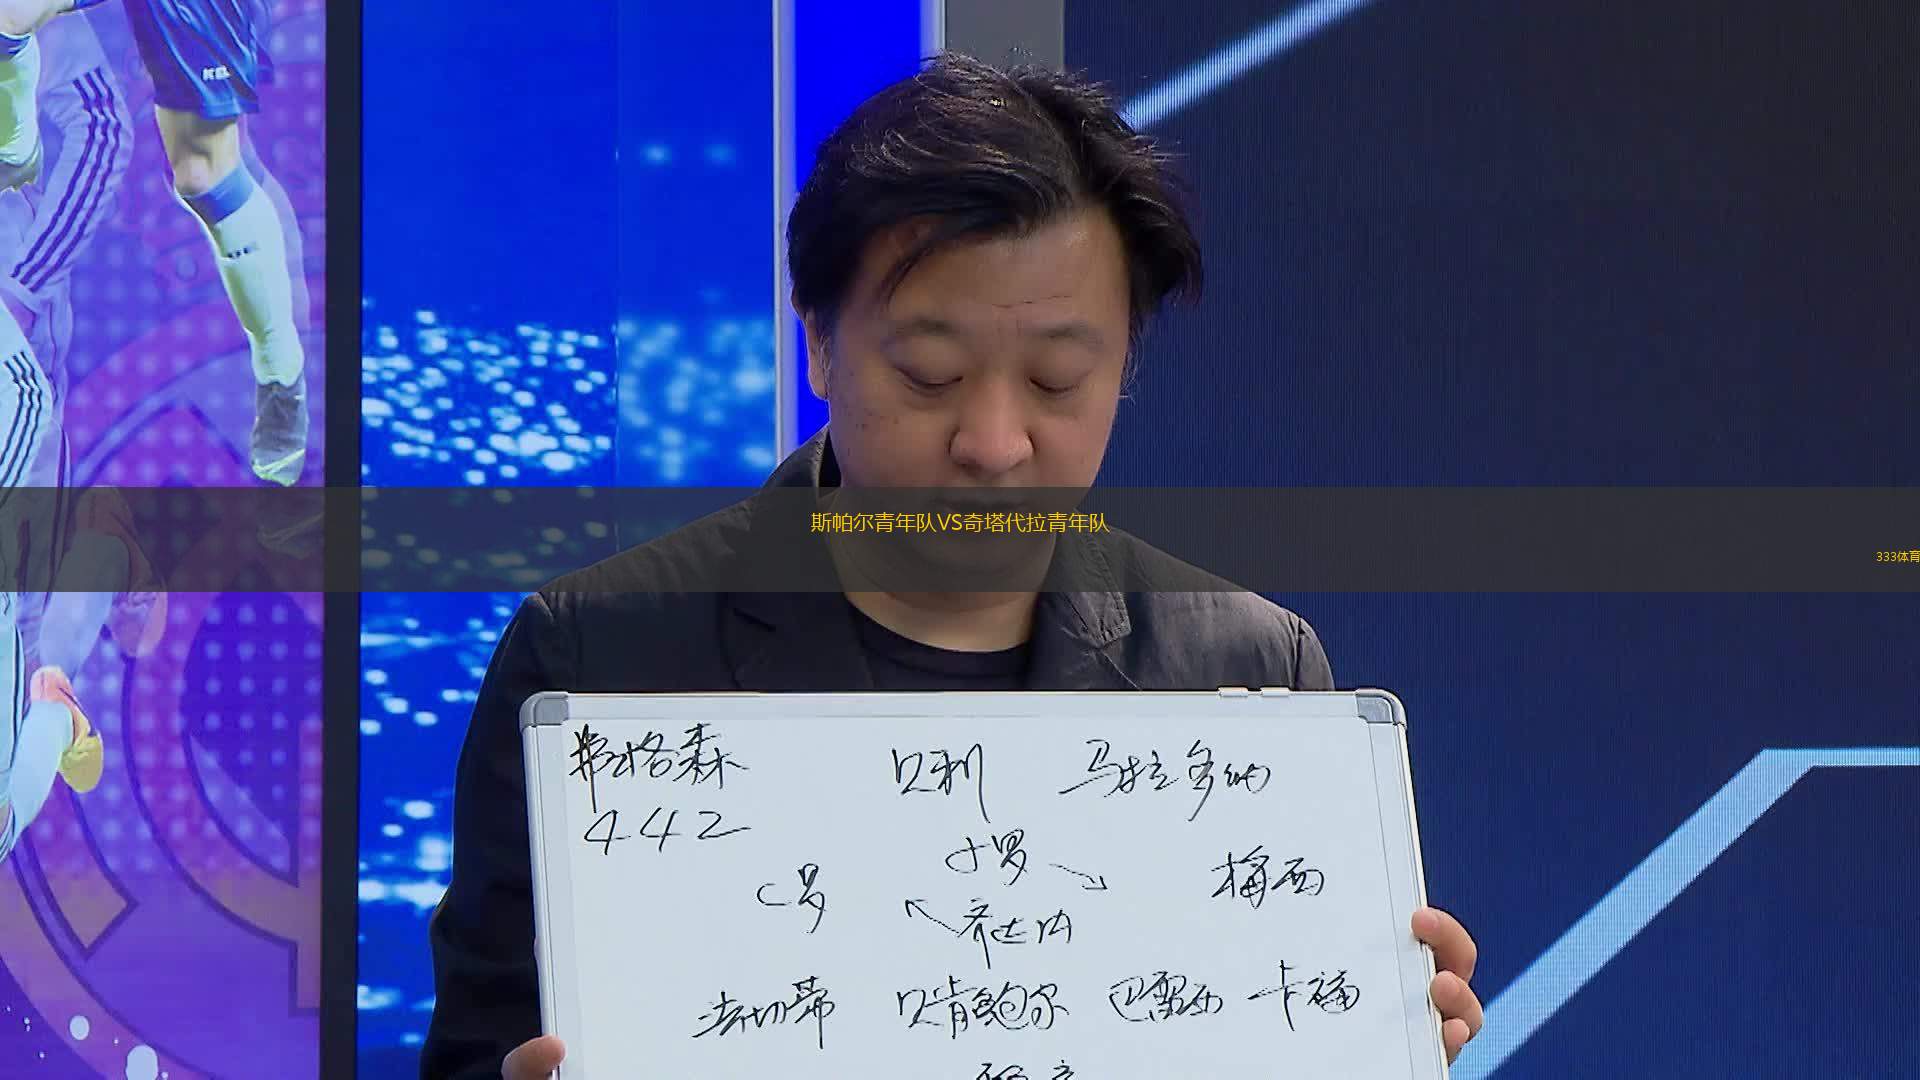 斯帕尔青年队VS奇塔代拉青年队
333体育
弗格森 贝利 马拉多纳
442
小罗
C罗 梅西
齐达内
法切蒂 贝肯鲍尔 巴雷西 卡福